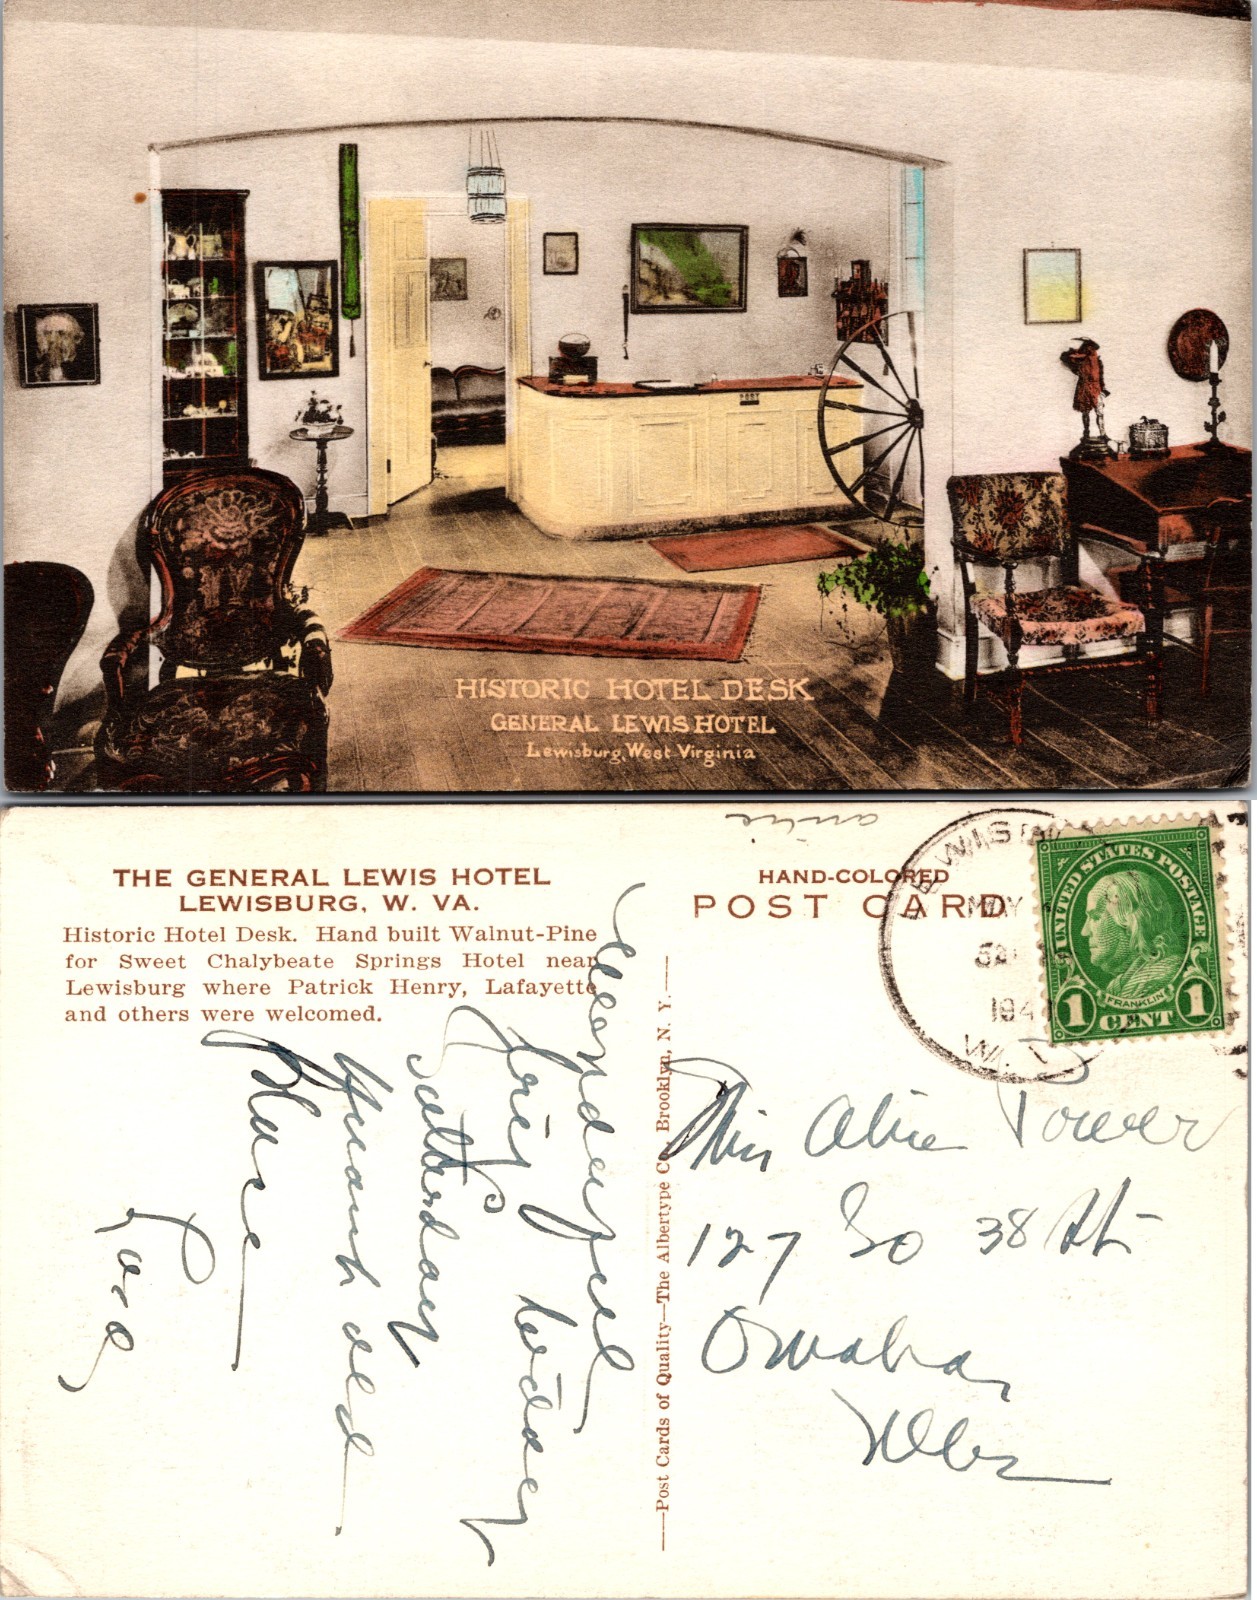 HISTORIC HOTEL DESK
GENERAL LEWIS HOTEL
Lewisburg, West Virginia
THE GENERAL LEWIS HOTEL
LEWISBURG, W. VA.
Historic Hotel Desk. Hand built Walnut-Pine
for Sweet Chalybeate Springs Hotel near
Lewisburg where Patrick Henry, Lafayette
and others were welcomed.
Wonderful
Friday
Saturday
Quaint old
Place
Love
auntie
HAND-COLORED
POST CARD
LEWISBU
MAY
194
W. V
UNITED STATES POSTAGE
FRANKLIN
1 CENT 1
Miss Alice Power
127 So 38 St
Omaha
Nebr
—Post Cards of Quality—The Albertype Co., Brooklyn, N. Y.—